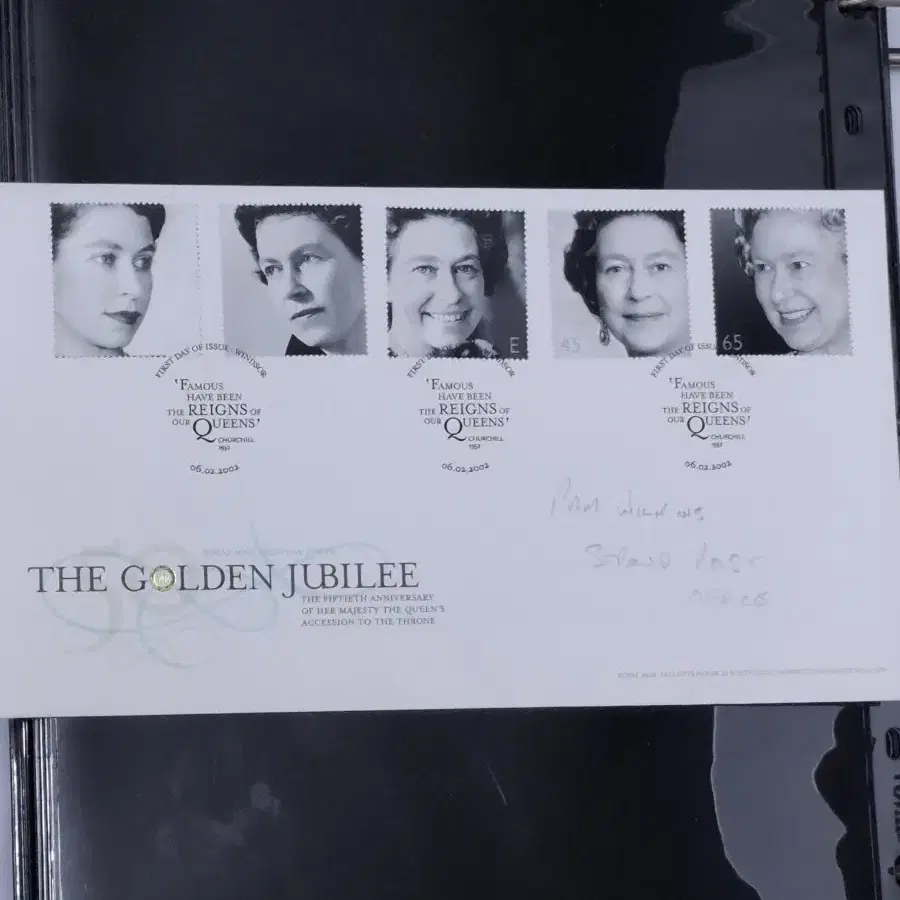 E
45
65
FIRST DAY OF ISSUE · WINDSOR
'FAMOUS
HAVE BEEN
THE REIGNS OF
OUR QUEENS'
CHURCHILL
1952
06.02.2002
FIRST DAY OF ISSUE · WINDSOR
'FAMOUS
HAVE BEEN
THE REIGNS OF
OUR QUEENS'
CHURCHILL
1952
06.02.2002
FIRST DAY OF ISSUE · WINDSOR
'FAMOUS
HAVE BEEN
THE REIGNS OF
OUR QUEENS'
CHURCHILL
1952
06.02.2002
THE GOLDEN JUBILEE
THE FIFTIETH ANNIVERSARY
OF HER MAJESTY THE QUEEN'S
ACCESSION TO THE THRONE